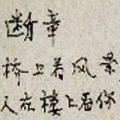 断章
桥上看风景
人在楼上看你